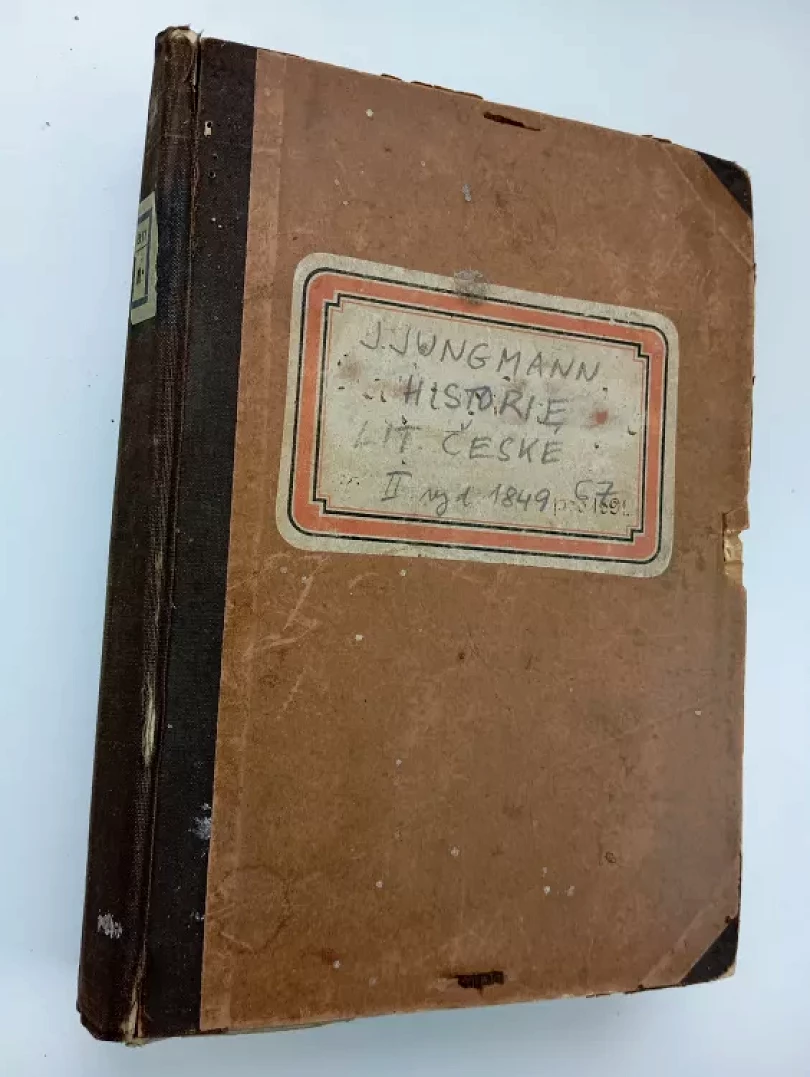 J. JUNGMANN
HISTORIE
LIT. ČESKÉ
II vyd 1849